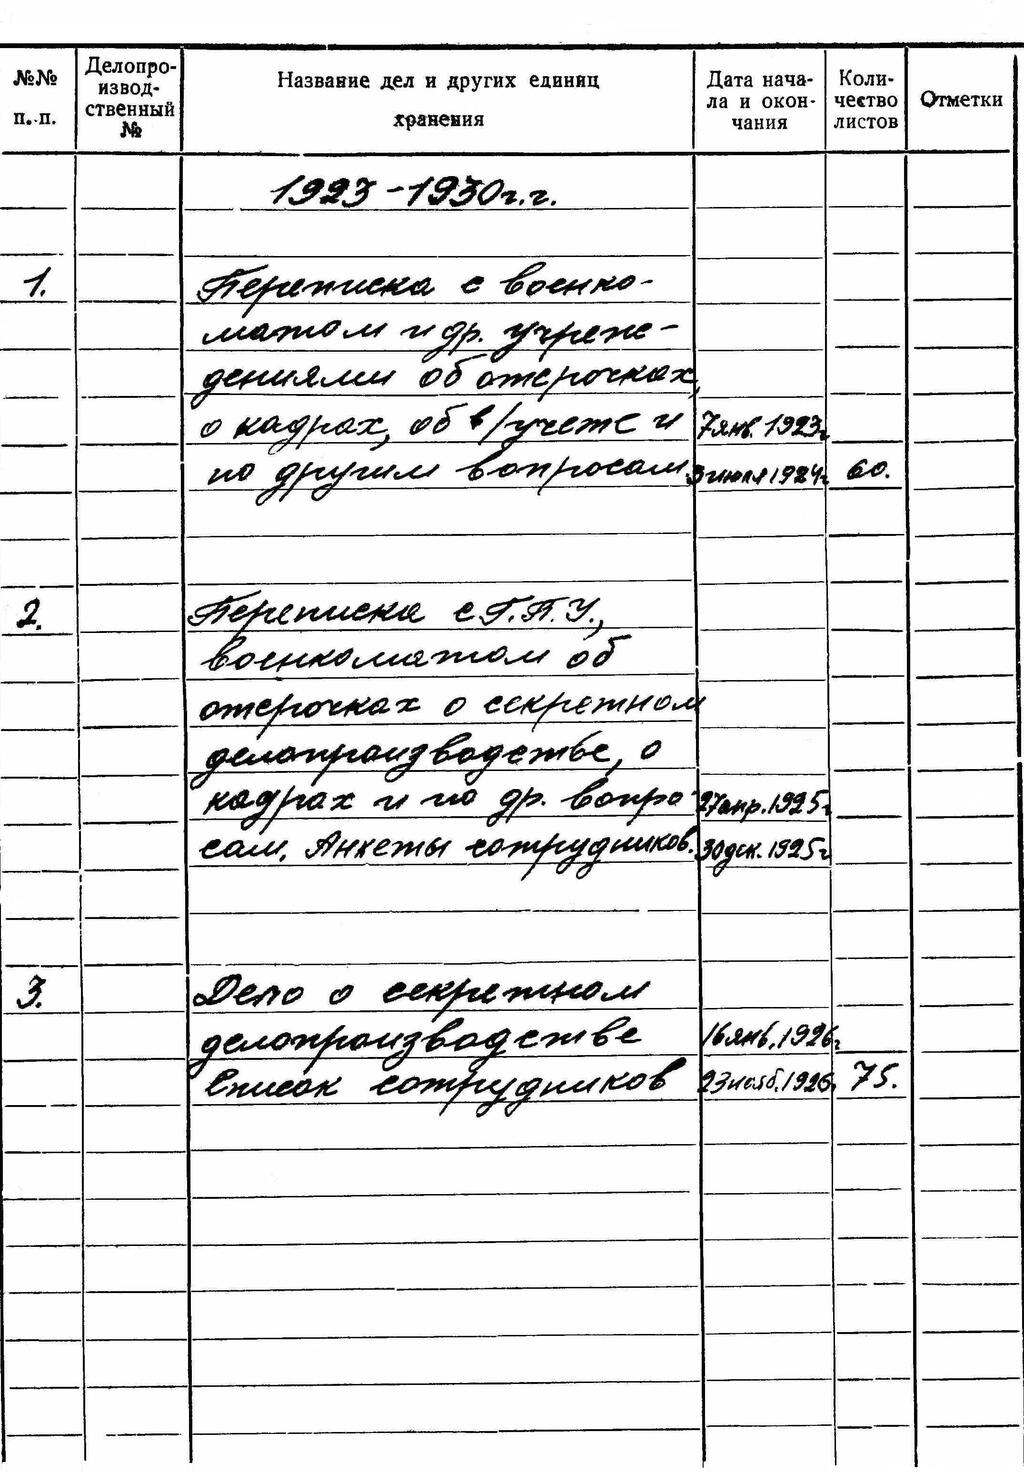 №№ п.-п.
Делопро-
извод-
ственный
№
Название дел и других единиц
хранения
Дата нача-
ла и окон-
чания
Коли-
чество
листов
Отметки
1923-1930г.г.
1. Переписка с военко-
матом и др. учреж-
дениями об отсрочках,
о кадрах, об в/учете и 7 янв. 1923г
по другим вопросам. 3 июля 1924г 60.
2. Переписка с Г.П.У.,
военкоматом об
отсрочках о секретном
делопроизводстве, о
кадрах и по др. вопро- 27 апр. 1925г
сам. Анкеты сотрудников. 30 дек. 1925г
3. Дело о секретном
делопроизводстве 16 янв. 1926г
Список сотрудников 23 нояб. 1926г 75.